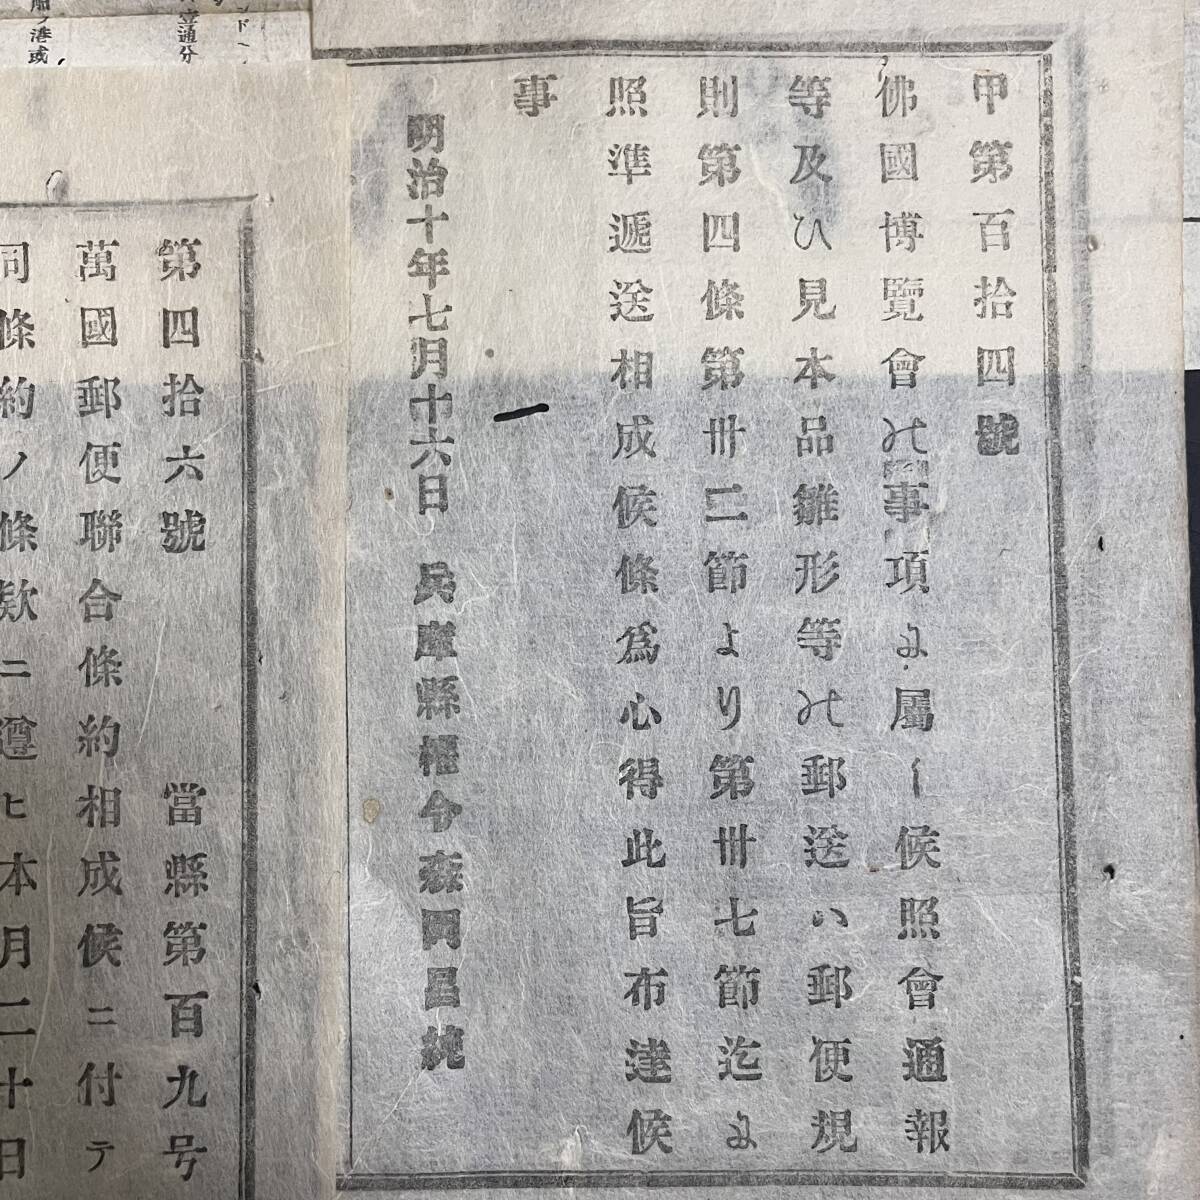 甲第百拾四號
佛國博覽會の事項よ屬し候照會通報
等及ひ見本品雛形等の郵送ハ郵便規
則第四條第卅二節より第卅七節迄よ
照準遞送相成候條爲心得此旨布達候
事
明治十年七月十六日 兵庫縣權令森岡昌純
第四拾六號 當縣第百九号
萬國郵便聯合條約相成候ニ付テ
同條約ノ條欵ニ遵ヒ本月二十日